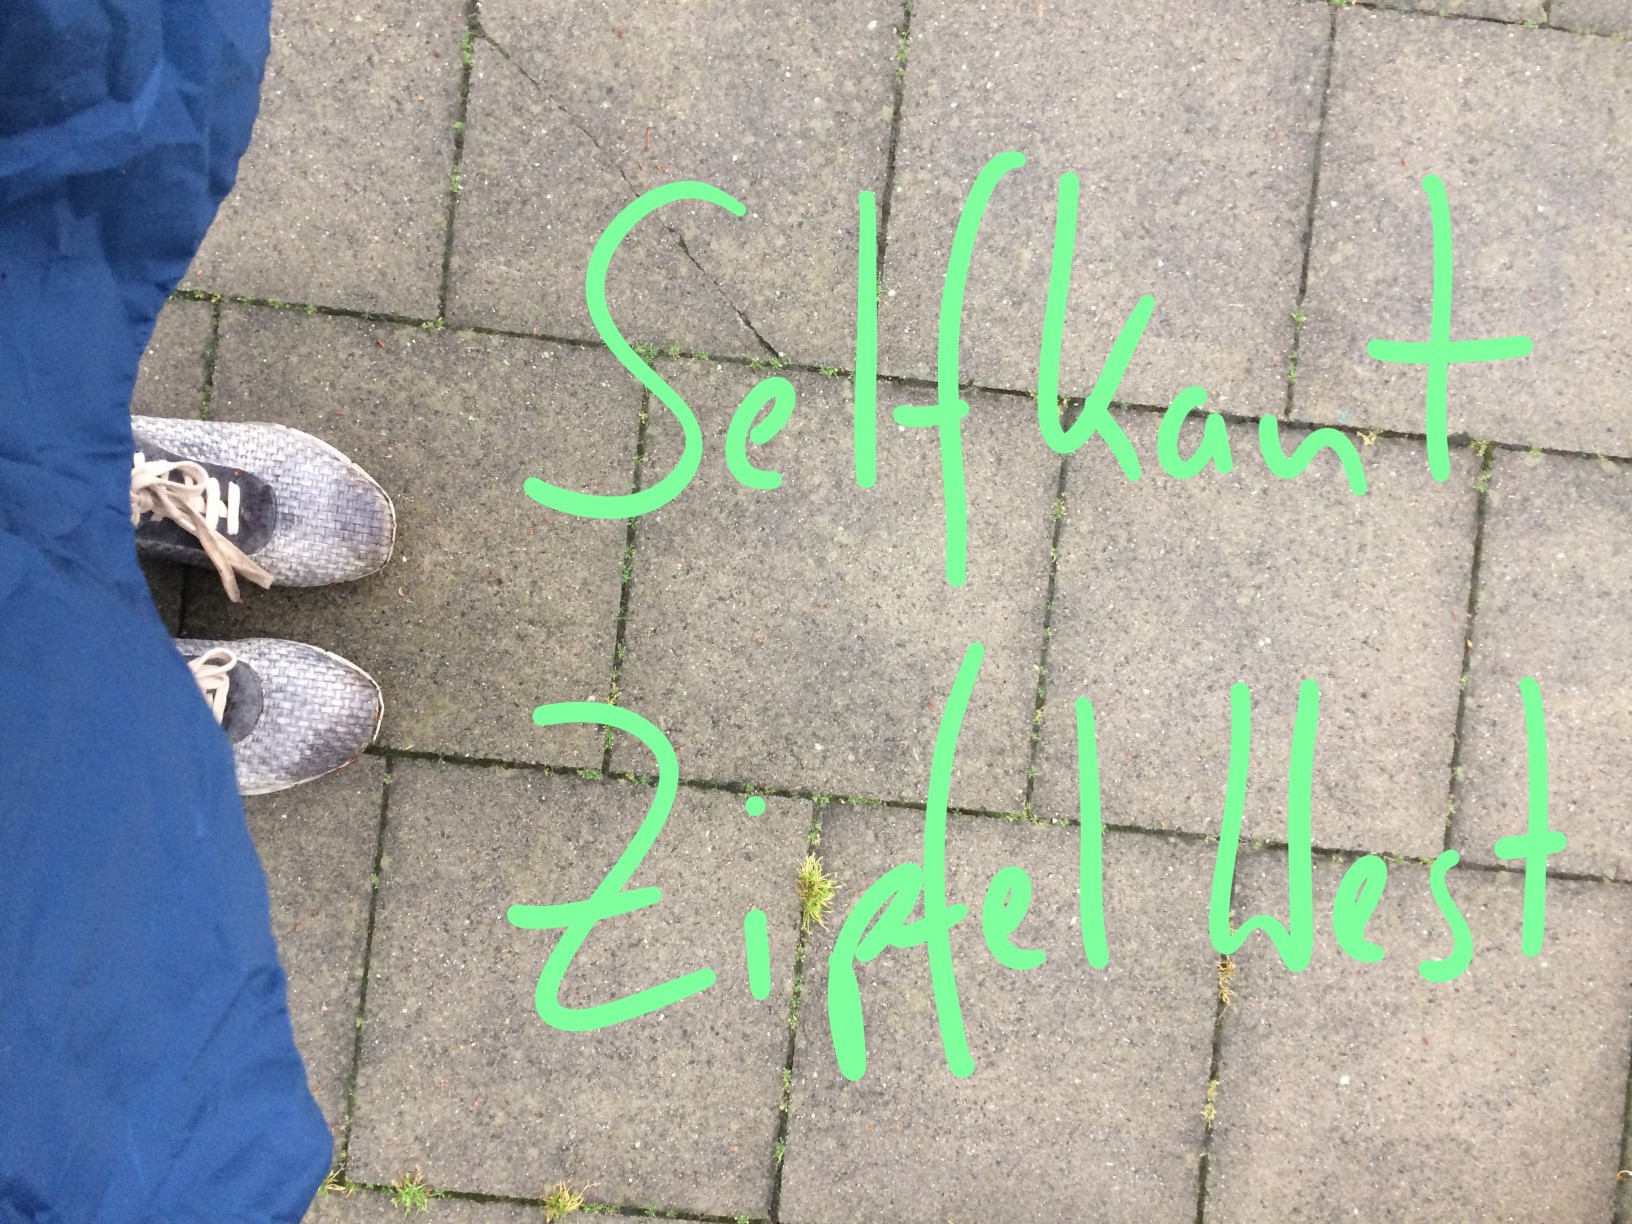 Selfkant
Zipfel West